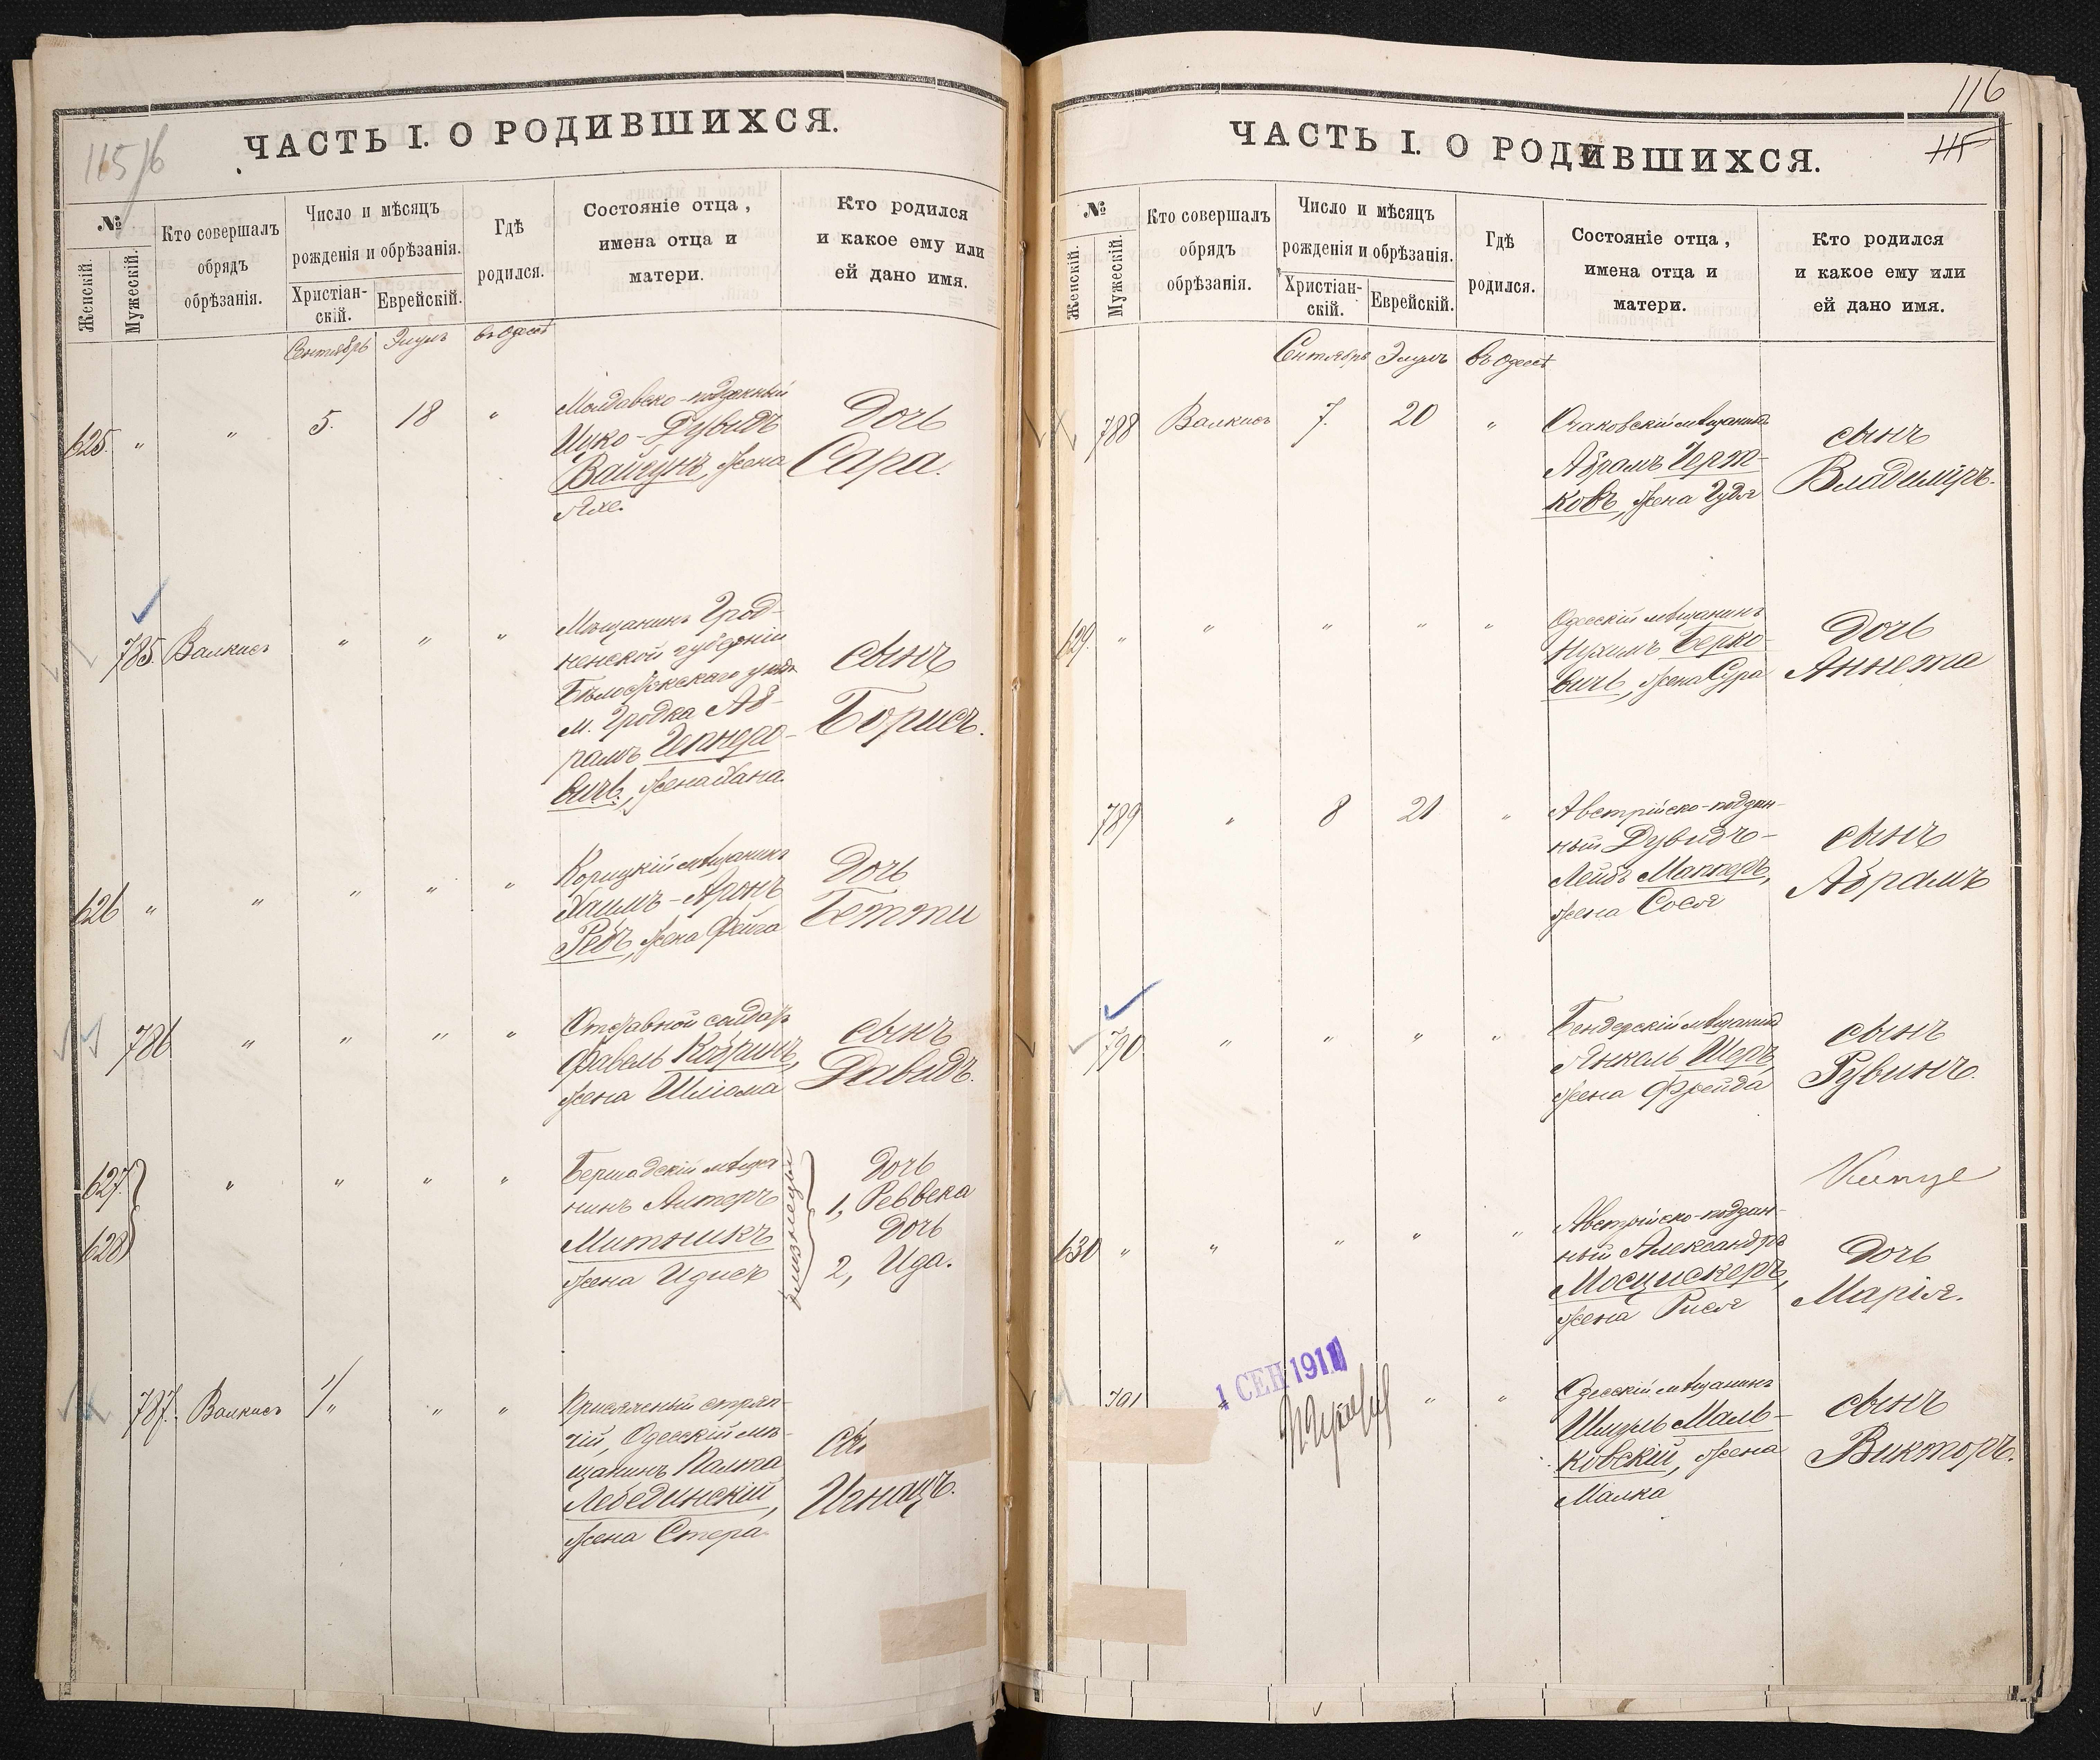 115/6
ЧАСТЬ I. О РОДИВШИХСЯ.
№
Женскій.
Мужескій.
Кто совершалъ
обрядъ
обрѣзанія.
Число и мѣсяцъ
рожденія и обрѣзанія.
Христіан-
скій.
Еврейскій.
Гдѣ
родился.
Состояніе отца,
имена отца и
матери.
Кто родился
и какое ему или
ей дано имя.
Сентябрь Элулъ въ Одессѣ
625. " " 5. 18 "
Молдавско-подданный
Ицко-Дувидъ
Вайгунъ, жена
Дочь
Сара.
785. Валкисъ " " "
Мѣщанинъ Грод-
ненской губерніи
Бѣлостокскаго уѣзда
м. Гродка Аб-
рамъ
вичъ, жена Хана.
сынъ
Борисъ.
626 " " " " "
Корицкій мѣщанинъ
Хаимъ-Аронъ
Ребъ, жена Фейга
Дочь
Бетти
786 " " " "
Отставной солдатъ
Фавель Кобринъ,
жена
сынъ
Давидъ.
627.
628
" " " "
Бершадскій мѣща-
нинъ Алтеръ
Митникъ
жена Идисъ
близнецы
Дочь
1, Реввека
Дочь
2, Ида.
787. Валкисъ " " "
Присяжный стряп-
чій, Одесскій мѣ-
щанинъ Палта
Лебединскій,
жена Стера
сы
Игнацъ.
116
115
ЧАСТЬ I. О РОДИВШИХСЯ.
№
Женскій.
Мужескій.
Кто совершалъ
обрядъ
обрѣзанія.
Число и мѣсяцъ
рожденія и обрѣзанія.
Христіан-
скій.
Еврейскій.
Гдѣ
родился.
Состояніе отца,
имена отца и
матери.
Кто родился
и какое ему или
ей дано имя.
Сентябрь Элулъ въ Одессѣ
788 Валкисъ 7. 20 "
Очаковскій мѣщанинъ
Абрамъ Черт-
ковъ, жена Гудя
сынъ
Владиміръ.
629. " " " " "
Одесскій мѣщанинъ
Нухимъ Берко-
вичъ, жена Сура
Дочь
Аннета
789 " 8 21 "
Австрійско-поддан-
ный Дувидъ-
Лейбъ
жена Сося
сынъ
Абрамъ
790 " " " "
Бендерскій мѣщанинъ
Янкель Шеръ,
жена Фрейда
сынъ
Рувинъ.
630 " " " " "
Австрійско-поддан-
ный Александръ
Мосцискеръ,
жена Рися
Дочь
Марія.
791 " "
1 СЕН 1911
Одесскій мѣщанинъ
Шмуль Маль-
ковскій, жена
Малка
сынъ
Викторъ.